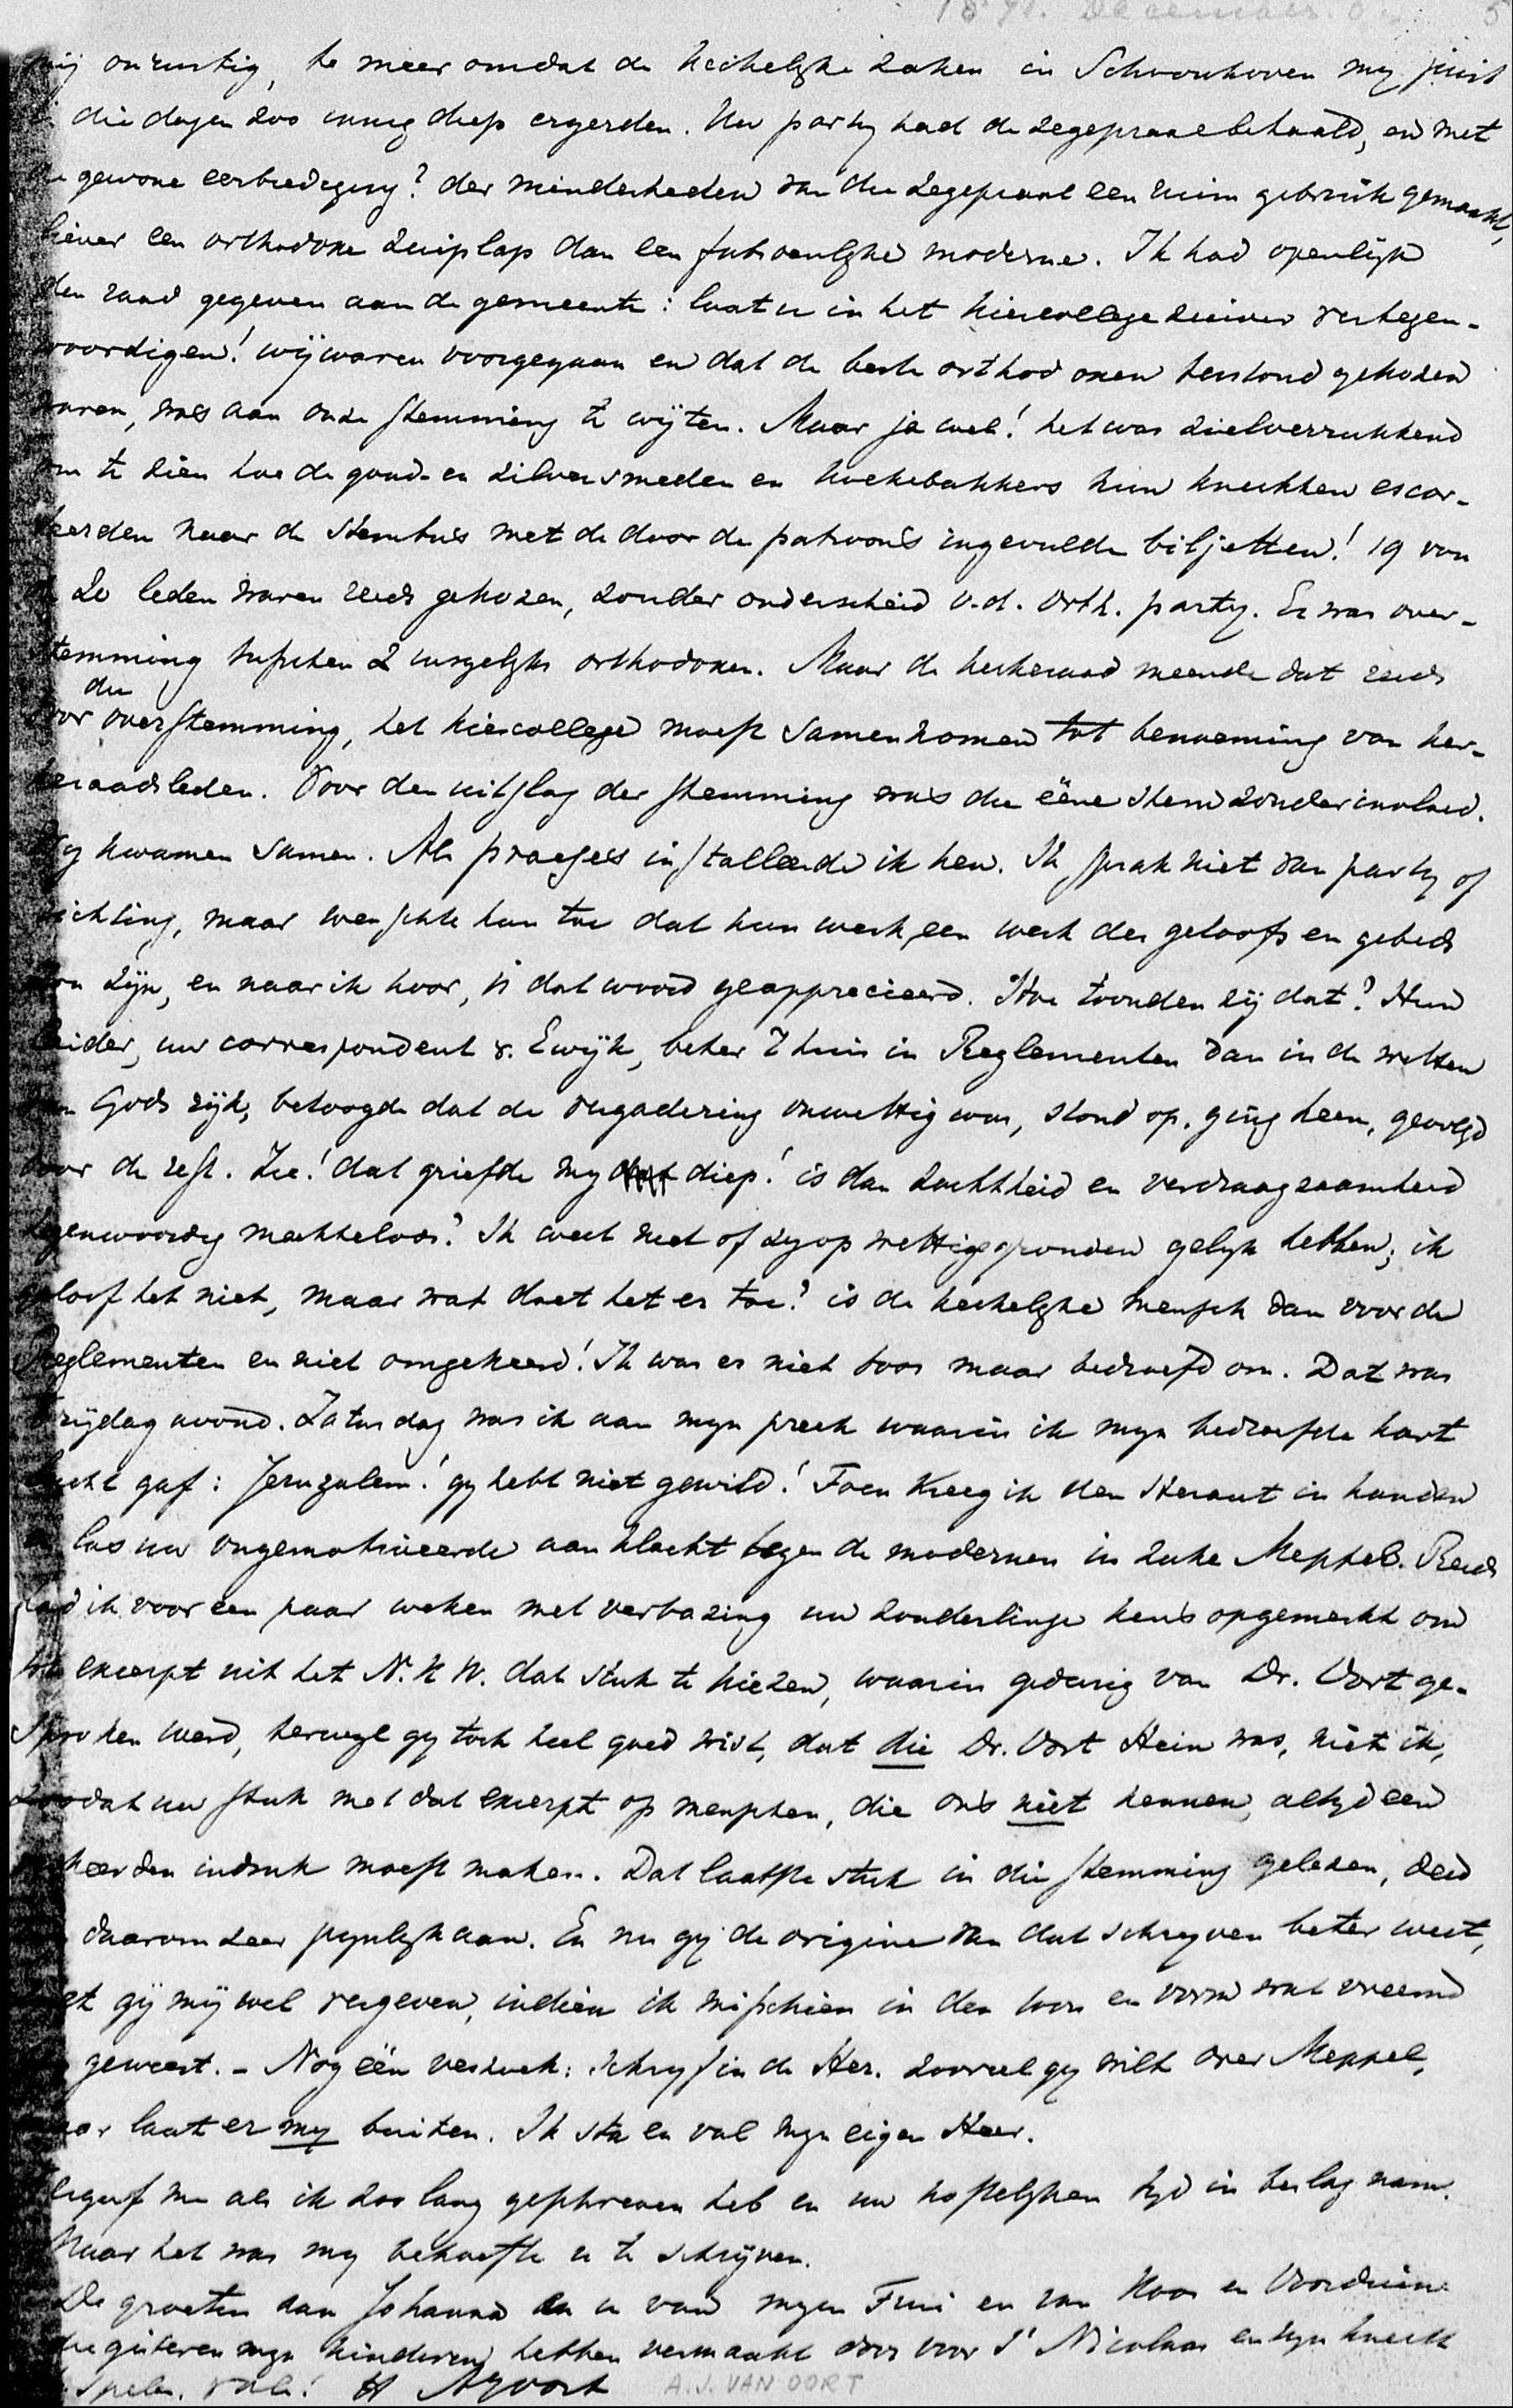 1871. December.
mij onrustig, te meer omdat de kerkelijke zaken in Schoonhoven my juist
die dagen zoo innig diep ergerden. Uw party had de zegepraal behaald, en met
de gewone eerbiediging? der minderheden van die zegepraal een ruim gebruik gemaakt,
liever een orthodoxe zuiplap dan een fatsoenlyke moderne. Ik had openlijk
den raad gegeven aan de gemeente: laat u in het kiescollege zuiver vertegen-
woordigen! wij waren voorgegaan en dat de beste orthodoxen terstond gekozen
waren, was aan onze stemming te wijten. Maar ja wel! het was zielverrukkend
om te zien hoe de goud- en zilversmeden en koekebakkers hun knechten escor-
teerden naar de stembus met de door de patroons ingevulde biljetten! 19 van
de 20 leden waren reeds gekozen, zonder onderscheid v.d. orth. party. Er was over-
stemming tusschen 2 insgelyks orthodoxen. Maar de kerkeraad meende dat reeds
voor die overstemming, het kiescollege moest samenkomen tot benoeming van ker-
keraadsleden. Voor den uitslag der stemming was die ééne stem zonder invloed.
Zy kwamen samen. Als praeses installeerde ik hen. Ik sprak niet van party of
richting, maar wenschte hun toe dat hun werk een werk des geloofs en gebeds
zou zijn, en naar ik hoor, is dat woord geapprecieerd. Hoe toonden zij dat? Hun
leider, uw correspondent v. Ewijk, beter t'huis in Reglementen dan in de wetten
van Gods rijk, betoogde dat de vergadering onwettig was, stond op, ging heen, gevolgd
door de rest. Zie! dat griefde my diep! is dan zachtheid en verdraagzaamheid
tegenwoordig machteloos? Ik weet niet of zy op wettige gronden gelyk hebben; ik
geloof het niet, maar wat doet het er toe? is de kerkelyke mensch dan voor de
Reglementen en niet omgekeerd! Ik was er niet boos maar bedroefd om. Dat was
Vrijdag avond. Zaturdag was ik aan myn preek waarin ik myn bedroefde hart
lucht gaf: Jeruzalem! gy hebt niet gewild! Toen kreeg ik den Heraut in handen
en las uw ongemotiveerde aanklacht tegen de modernen in zake Meppel. Reeds
had ik voor een paar weken met verbazing uw zonderlinge keus opgemerkt om
tot excerpt uit het N. K W. dat stuk te kiezen, waarin gedurig van Dr. Oort ge-
sproken werd, terwyl gy toch heel goed wist, dat die Dr. Oort Hein was, niet ik,
zoodat uw stuk met dat excerpt op menschen, die ons niet kennen, altyd een
verkeerden indruk moest maken. Dat laatste stuk in die stemming gelezen, deed
daarom zeer pynlyk aan. En nu gij de origine van dat schryven beter weet,
gij mij wel vergeven, indien ik misschien in den toon en vorm wat vreemd
geweest. - Nog één verzoek: schryf in de Her. zooveel gy wilt over Meppel,
maar laat er my buiten. Ik sta en val myn eigen Heer.
Vergeef me als ik zoo lang geschreven heb en uw kostelyken tyd in beslag nam.
Maar het was my behoefte u te schrijven.
De groeten aan Johanna en u van myn en van Koos en
die gisteren myn kinderen hebben vermaakt door voor St Nicolaas en zyn knecht
te spelen. Vale! tt AJ Oort A.J. VAN OORT